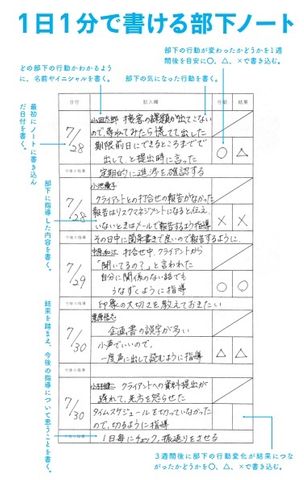 1日1分で書ける部下ノート
部下の行動が変わったかどうかを1週間後を目安に○、△、×で書き込む。
どの部下の行動かわかるように、名前やイニシャルを書く。
部下の気になった行動を書く。
最初にノートに書き込んだ日付を書く。
部下に指導した内容を書く。
結果を踏まえ、今後の指導について思うことを書く。
日付 記入欄 行動 結果
7/28
山田太郎 接客の課題が出てこない
ので、尋ねてみたら慌てて出した
期限前にできるところまで
出してと提出時に言った
○ △
定期的に進捗を確認する
7/28
クライアントとの打合せの報告がなかった
報告はリスクマネジメントになると伝え
いないときはメールで報告するよう指導
× ×
その日中に箇条書きで良いので報告するように
7/29
打合せ中、クライアントから
「聞いてるの?」と言われた
自分に関係のない話でも
うなずくように指導
○ ○
印象の大切さを教えておきたい
7/30
企画書の誤字が多い
小声でいいので、
一度声に出して読むように指導
△ △
7/30
小林健二 クライアントへの資料提出が
遅れて、先方を怒らせた
タイムスケジュールを切っていなかった
ので、切るように指導
1日毎にチェック、振返りをさせる
3週間後に部下の行動変化が結果につながったかどうかを○、△、×で書き込む。